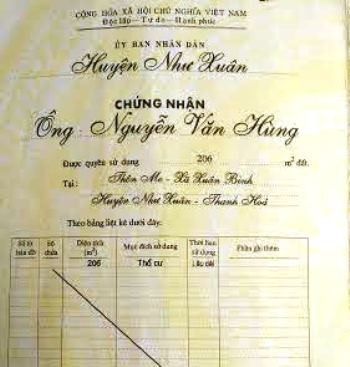 CỘNG HÒA XÃ HỘI CHỦ NGHĨA VIỆT NAM
Độc lập - Tự do - Hạnh phúc
ỦY BAN NHÂN DÂN
Huyện Như Xuân
CHỨNG NHẬN
Ông : Nguyễn Văn Hùng
Được quyền sử dụng 206 m² đất.
Tại : Thôn Mơ - Xã Xuân Bình
Huyện Như Xuân - Thanh Hoá
Theo bảng liệt kê dưới đây:
Số tờ bản đồ Số thửa Diện tích (m²) Mục đích sử dụng Thời hạn sử dụng Phần ghi thêm
206 Thổ cư Lâu dài